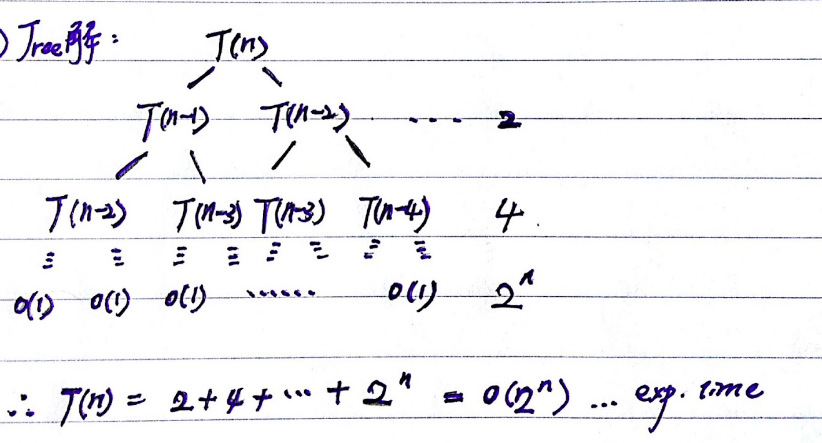 ) Tree解:
T(n)
T(n-1) T(n-2) .... 2
T(n-2) T(n-3) T(n-3) T(n-4) 4
O(1) O(1) O(1) ...... O(1) 2^n
∴ T(n) = 2+4+...+2^n = O(2^n) ... exp. time